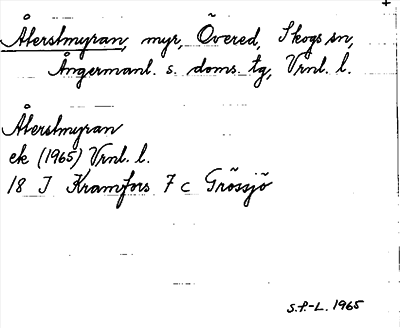 Återstmyran, myr, Övered, Skogs sn,
Ångermanl. s. doms. tg, Vrnl. l.
Återstmyran
ek (1965) Vrnl. l.
18 I Kramfors 7 c Grössjö
S.P.-L. 1965